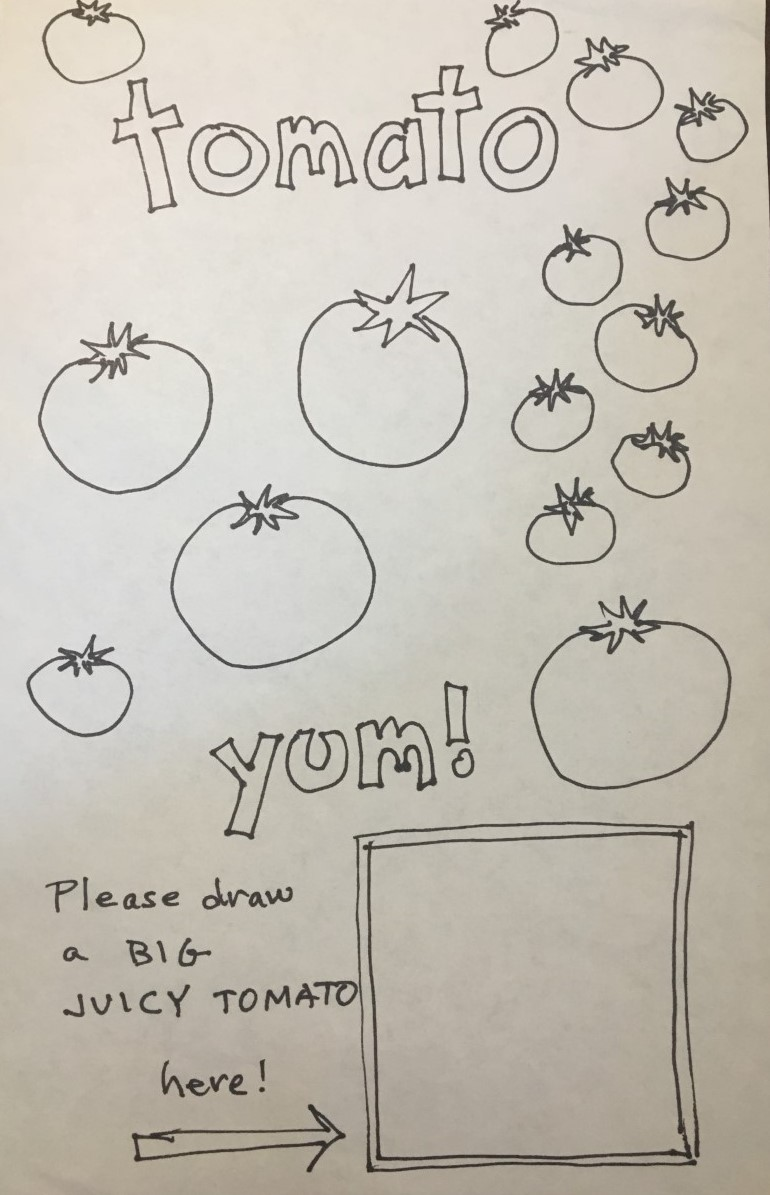 tomato
yum!
Please draw
a BIG
JUICY TOMATO
here!